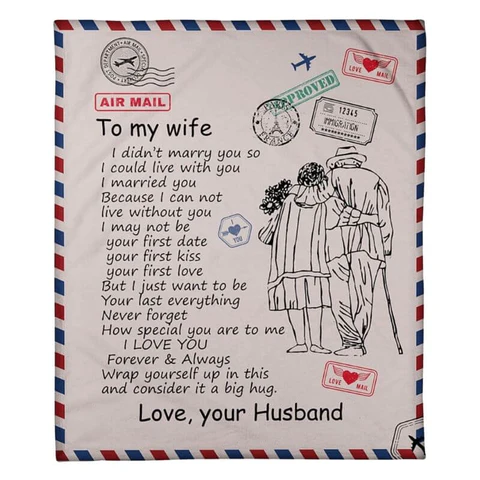 POST DEPARTMENT • AIR MAIL • SPECIAL
LOVE MAIL
APPROVED
AIR MAIL
PARIS
FRANCE
12345
IMMIGRATION
To my wife
I didn't marry you so
I could live with you
I married you
Because I can not
live without you
I may not be
your first date
your first kiss
your first love
But I just want to be
Your last everything
Never forget
How special you are to me
I LOVE YOU
Forever & Always
Wrap yourself up in this
and consider it a big hug.
Love, your Husband
I
YOU
LOVE MAIL